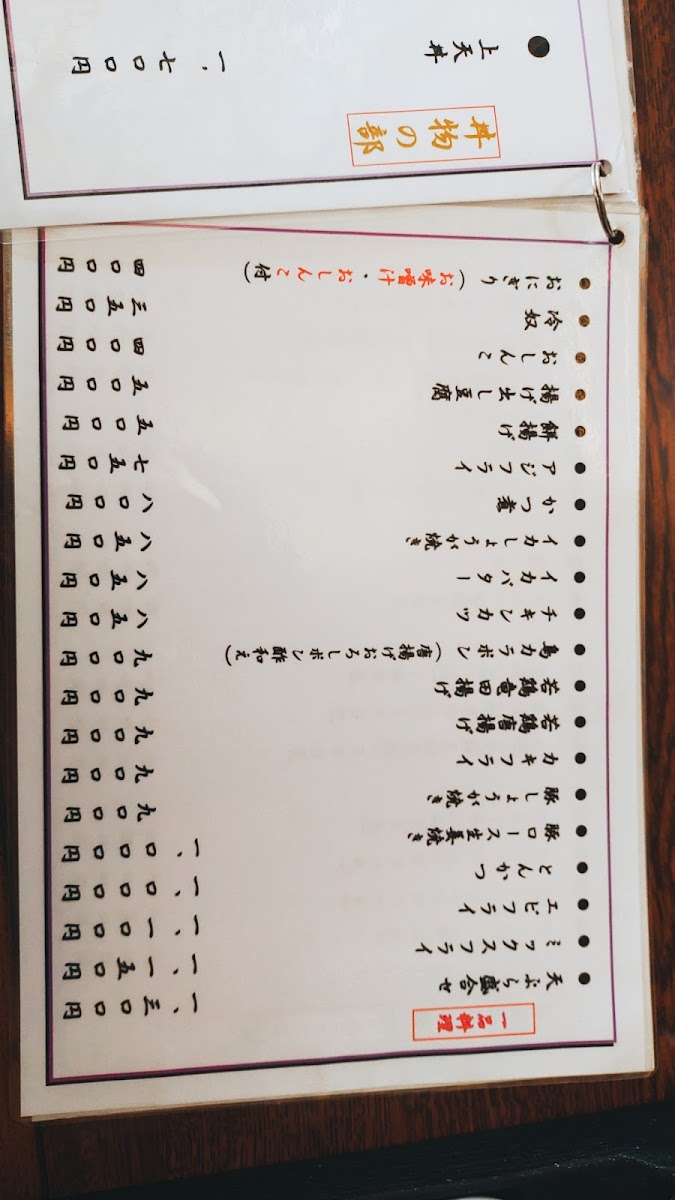 一品料理
● 天ぷら盛合せ 一、三〇〇円
● ミックスフライ 一、一五〇円
● エビフライ 一、一〇〇円
● とんかつ 一、〇〇〇円
● 豚ロース生姜焼き 一、〇〇〇円
● 豚しょうが焼き 九〇〇円
● カキフライ 九〇〇円
● 若鶏唐揚げ 九〇〇円
● 若鶏竜田揚げ 九〇〇円
● 鳥カラポン（唐揚げおろしポン酢和え） 九〇〇円
● チキンカツ 八五〇円
● イカバター 八五〇円
● イカしょうが焼き 八五〇円
● かつ煮 八〇〇円
● アジフライ 七五〇円
● 餅揚げ 五〇〇円
● 揚げ出し豆腐 五〇〇円
● おしんこ 四〇〇円
● 冷奴 三五〇円
● おにぎり（お味噌汁・おしんこ付） 四〇〇円
丼物の部
● 上天丼 一、七〇〇円